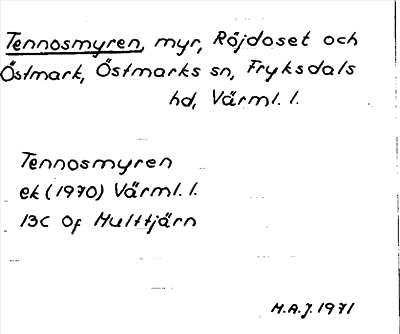 Tennosmyren, myr, Röjdoset och
Östmark, Östmarks sn, Fryksdals
hd, Värml. l.
Tennosmyren
ek (1970) Värml. l.
13C 0f Multtjärn
M.A.J. 1971